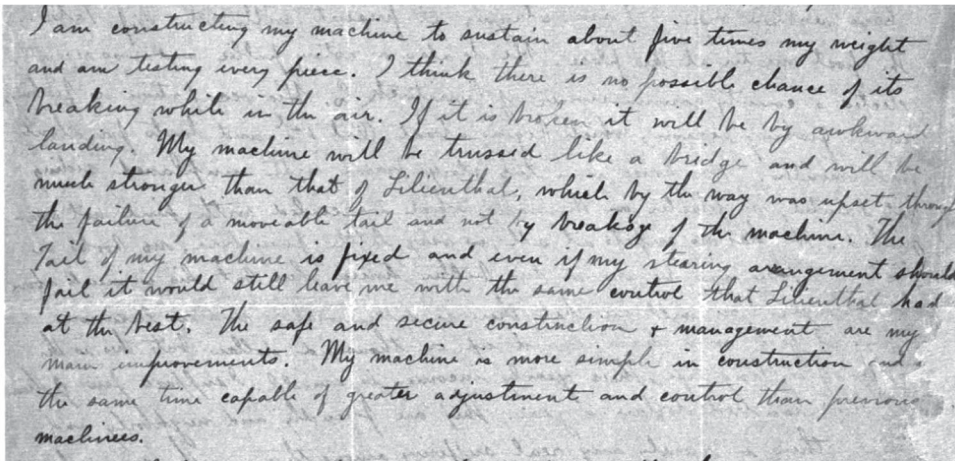 I am constructing my machine to sustain about five times my weight
and am testing every piece. I think there is no possible chance of its
breaking while in the air. If it is broken it will be by awkward
landing. My machine will be trussed like a bridge and will be
much stronger than that of Lilienthal, which by the way was upset through
the failure of a moveable tail and not by breakage of the machine. The
Tail of my machine is fixed and even if my stearing arangement should
fail it would still leave me with the same control that Lilienthal had
at the best. The safe and secure construction + management are my
main improvements. My machine is more simple in construction and
the same time capable of greater adjustment and control than previous
machines.